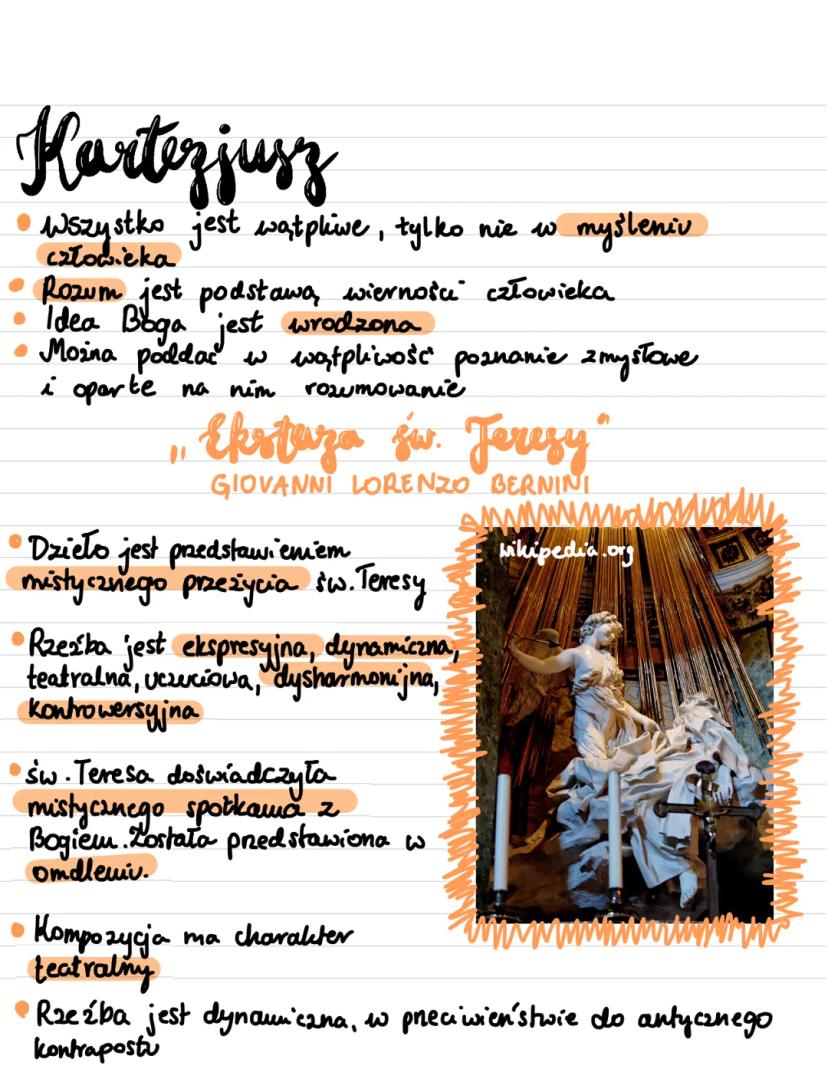 Kartezjusz
• Wszystko jest wątpliwe, tylko nie w myśleniu
człowieka
• Rozum jest podstawą wierności człowieka
• Idea Boga jest wrodzona
• Można poddać w wątpliwość poznanie zmysłowe
i oparte na nim rozumowanie
„Ekstaza św. Teresy"
GIOVANNI LORENZO BERNINI
wikipedia.org
• Dzieło jest przedstawieniem
mistycznego przeżycia św. Teresy
• Rzeźba jest ekspresyjna, dynamiczna,
teatralna, uczuciowa, dysharmonijna,
kontrowersyjna
• św. Teresa doświadczyła
mistycznego spotkania z
Bogiem. Została przedstawiona w
omdleniu.
• Kompozycja ma charakter
teatralny
• Rzeźba jest dynamiczna, w przeciwieństwie do antycznego
kontrapostu